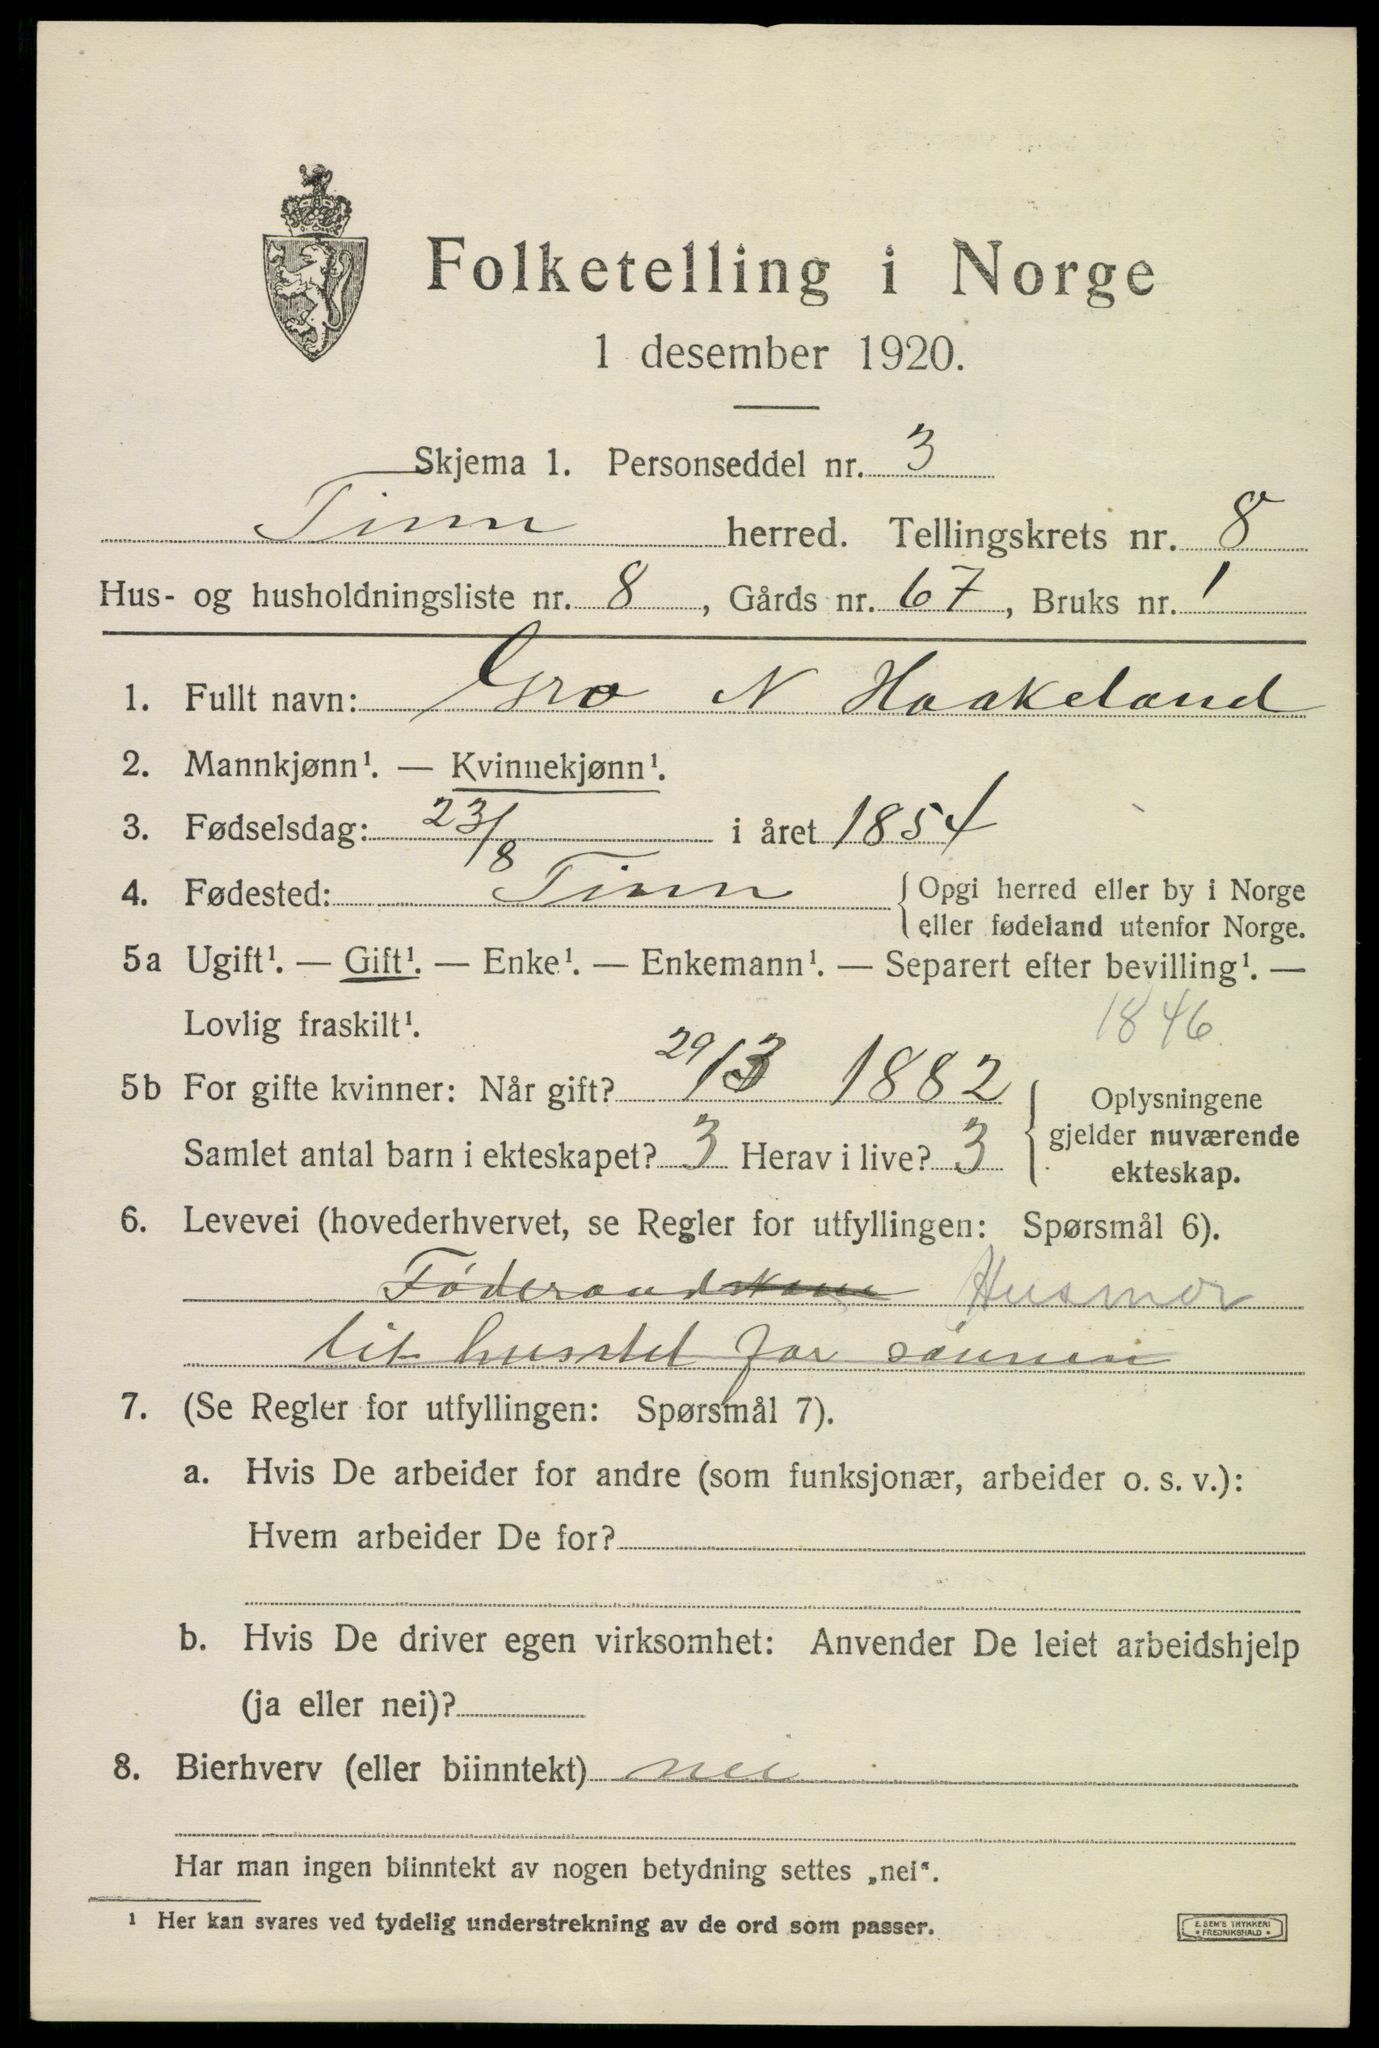 Folketelling i Norge
1 desember 1920.
Skjema 1. Personseddel nr. 3
Tinn herred. Tellingskrets nr. 8
Hus- og husholdningsliste nr. 8, Gårds nr. 67, Bruks nr. 1
1. Fullt navn: Gro N Haakeland
2. Mannkjønn¹. — Kvinnekjønn¹.
3. Fødselsdag: 23/8 i året 1854
4. Fødested: Tinn {Opgi herred eller by i Norge
eller fødeland utenfor Norge.
5a Ugift¹. — Gift¹. — Enke¹. — Enkemann¹. — Separert efter bevilling¹. —
Lovlig fraskilt¹. 1846
5b For gifte kvinner: Når gift? 29/3 1882 { Oplysningene
gjelder nuværende
Samlet antal barn i ekteskapet? 3 Herav i live? 3 ekteskap.
6. Levevei (hovederhvervet, se Regler for utfyllingen: Spørsmål 6).
Føderaadskone Husmor
lit husstel for sønnen
7. (Se Regler for utfyllingen: Spørsmål 7).
a. Hvis De arbeider for andre (som funksjonær, arbeider o. s. v.):
Hvem arbeider De for?
b. Hvis De driver egen virksomhet: Anvender De leiet arbeidshjelp
(ja eller nei)?
8. Bierhverv (eller biinntekt) nei
Har man ingen biinntekt av nogen betydning settes „nei“.
¹ Her kan svares ved tydelig understrekning av de ord som passer.
E. SEM'S TRYKKERI
* FREDRIKSHALD *